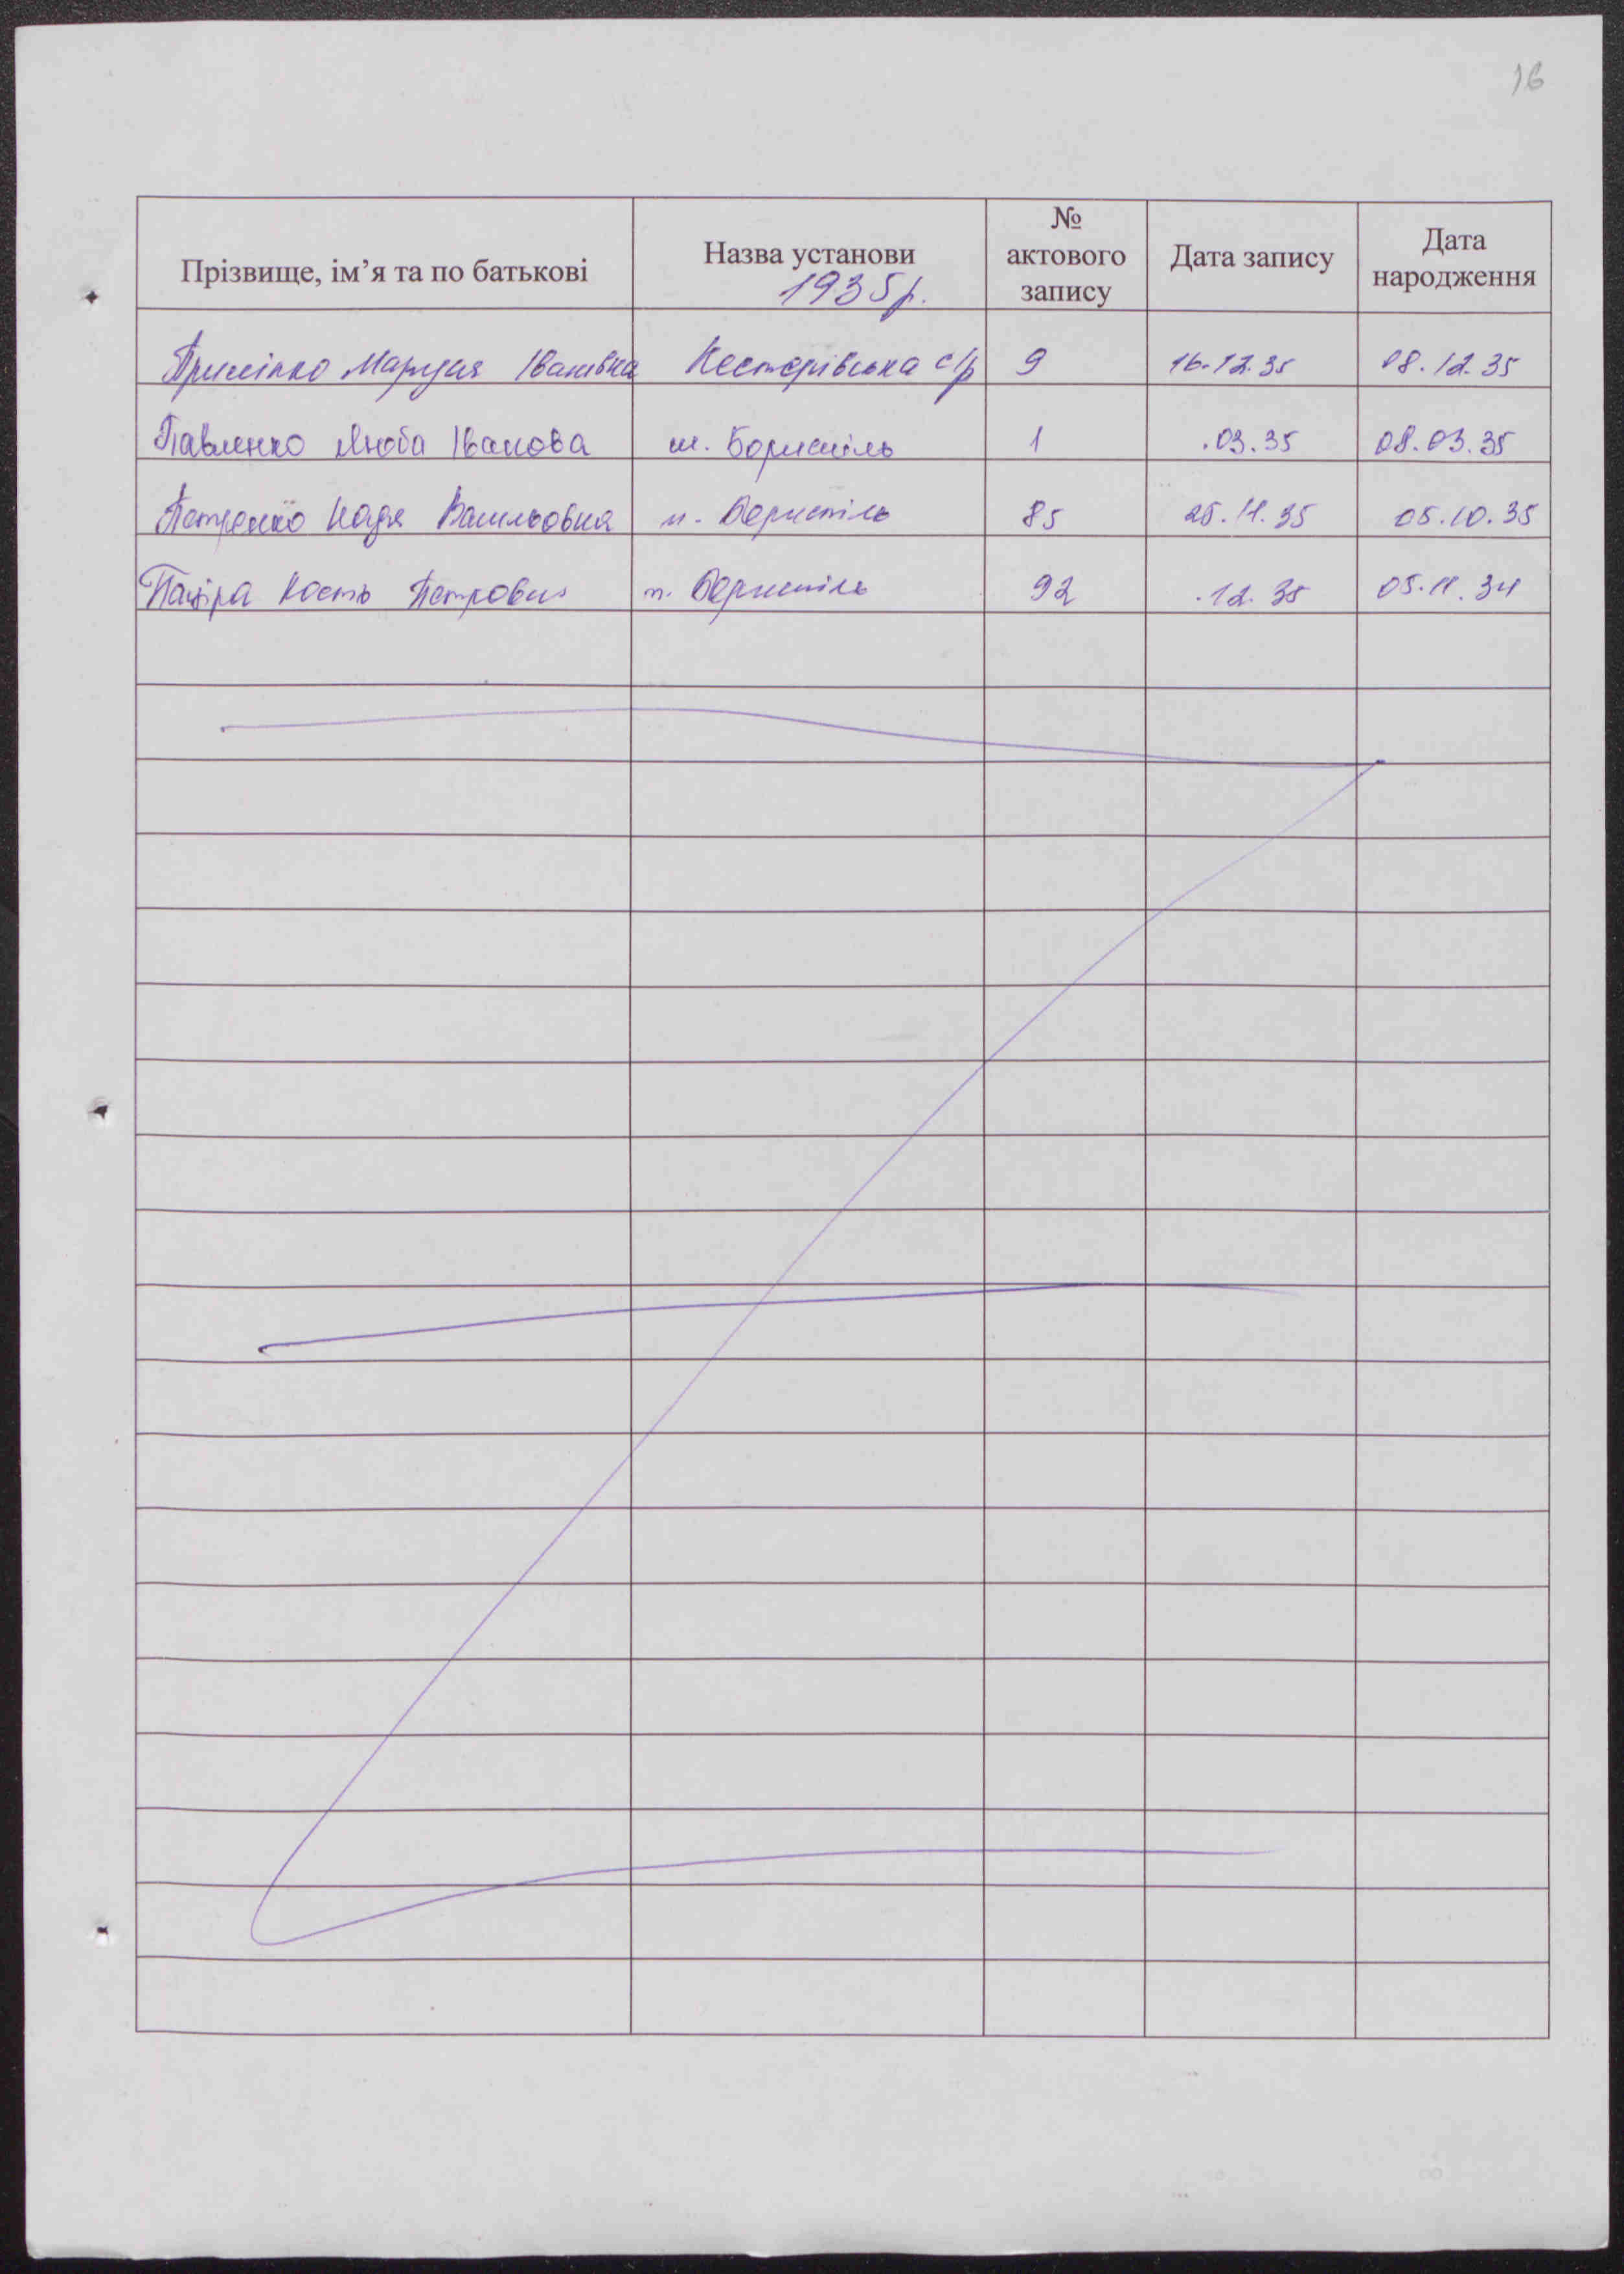 16
Прізвище, ім’я та по батькові Назва установи № актового запису Дата запису Дата народження
1935р.
Маруся Іванівна Нестерівська с/р 9 16.12.35 08.12.35
Павленко Люба Іванова м. Бориспіль 1 .03.35 08.03.35
Петренко Надя Васильовна м. Бориспіль 85 25.11.35 05.10.35
Паціра Кость Петрович м. Бориспіль 92 .12.35 05.11.34